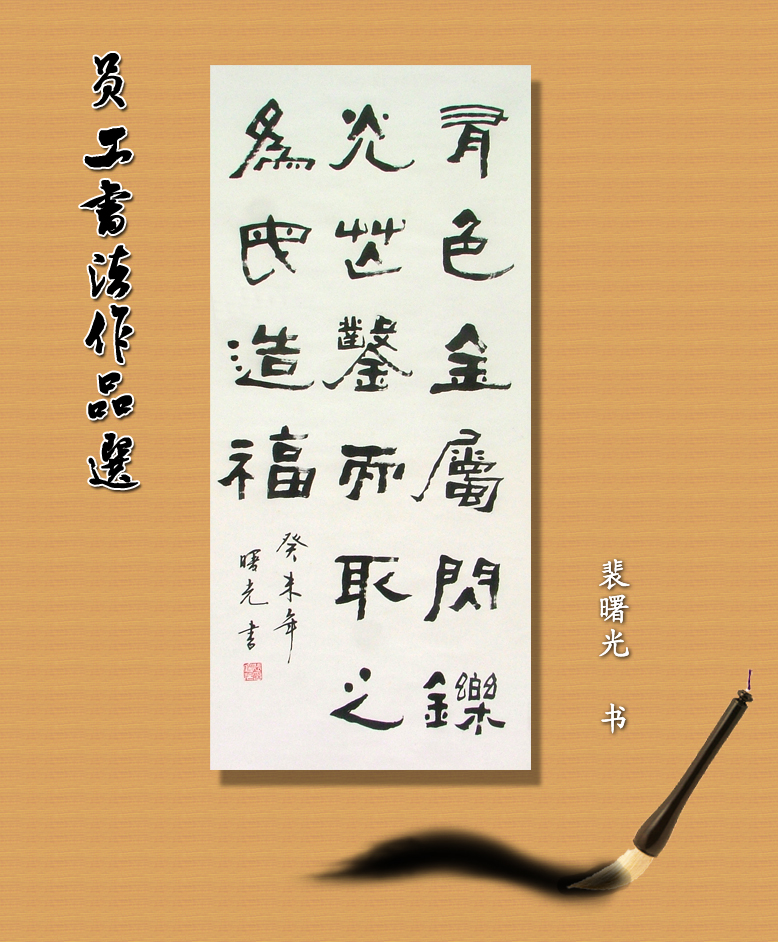 员工书法作品選
有色金屬閃鑠
光芒鑿而取之
為民造福
癸未年
曙光書
裴曙光 书